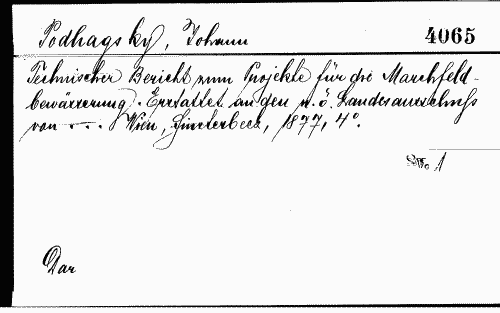 Podhagsky, Johann 4065
Technischer Bericht zum Projekte für die Marchfeld-
bewässerung. Erstattet an den n. ö. Landesausschuß
von .... Wien, 1877, 4°.
1